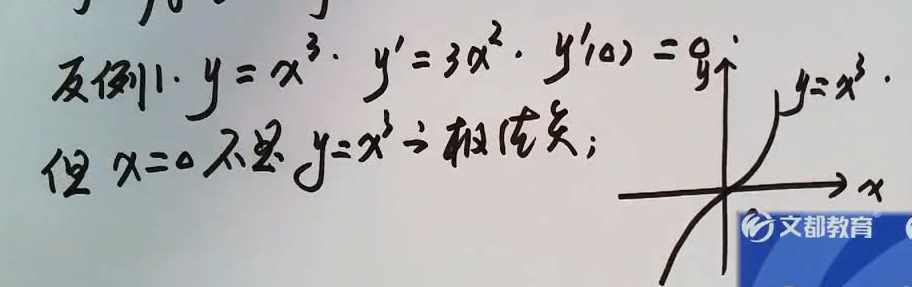 反例1. y = x³. y' = 3x². y'(0) = 0.
但 x=0 不是 y=x³之极值点;
y
y=x³.
x
文都教育